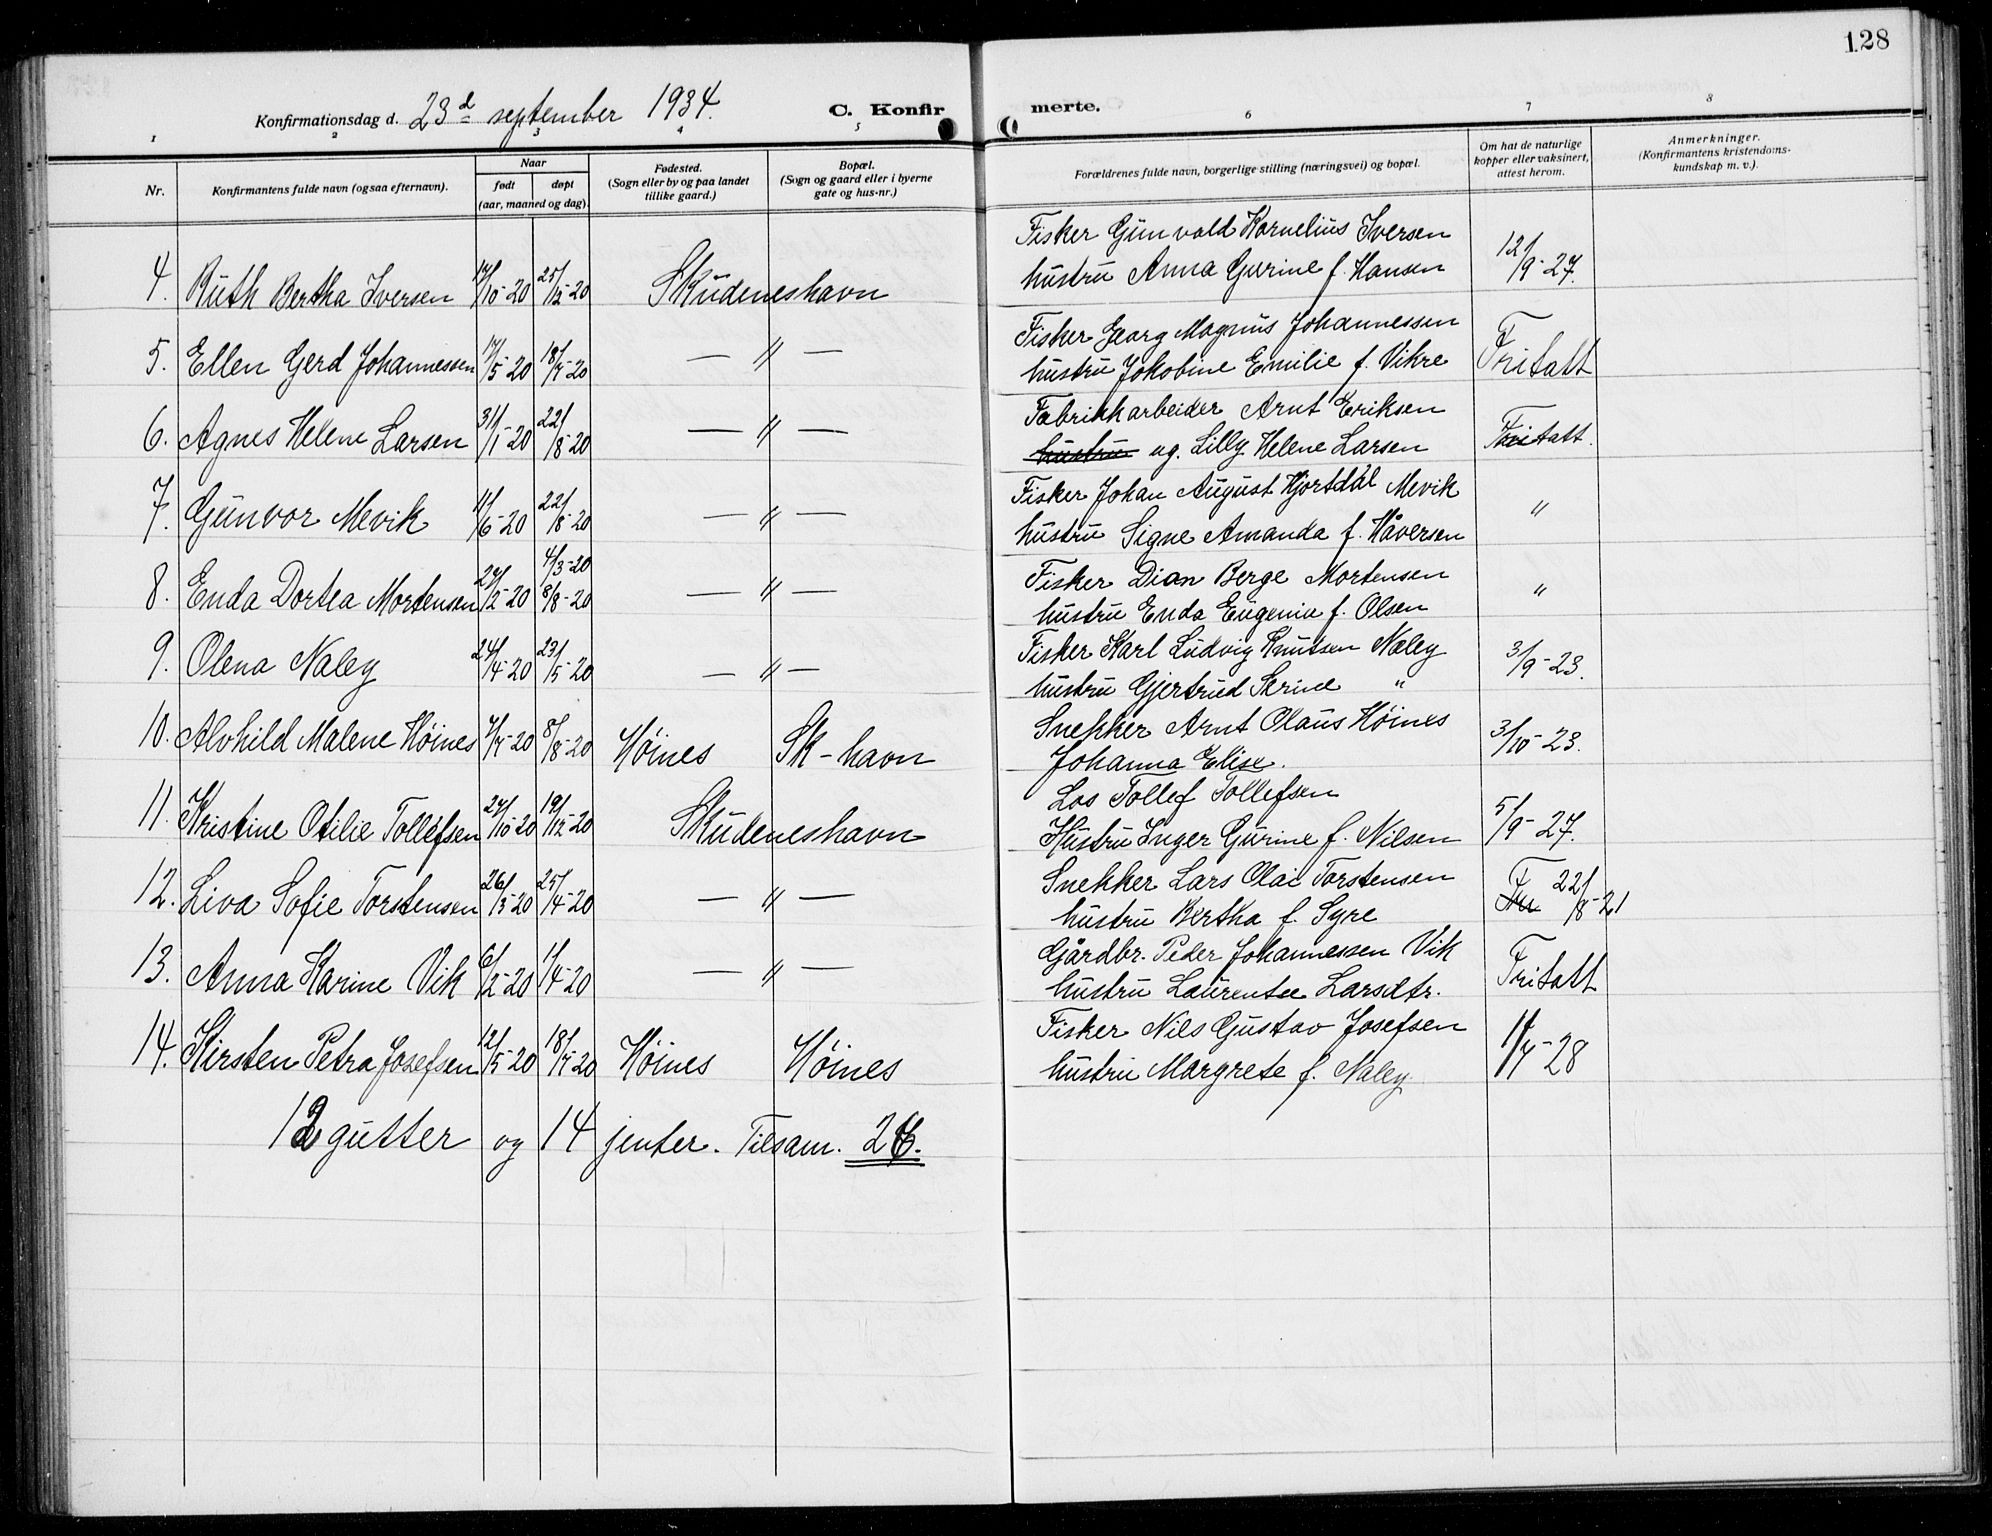 128
Konfirmationsdag d. 23d september 1934.
C. Konfirmerte.
1 2 3 4 5 6 7 8
Nr.
Konfirmantens fulde navn (ogsaa efternavn).
Naar
født
døpt
(aar, maaned og dag).
Fødested.
(Sogn eller by og paa landet
tillike gaard.)
Bopæl.
(Sogn og gaard eller i byerne
gate og hus-nr.)
Forældrenes fulde navn, borgerlige stilling (næringsvei) og bopæl.
Om hat de naturlige
kopper eller vaksinert,
attest herom.
Anmerkninger.
(Konfirmantens kristendoms-
kundskap m. v.).
Fisker Gunvald Kornelius Iversen
4. Ruth Bertha Iversen 17/10-20 25/12-20 Skudeneshavn hustru Anna Gurine f. Hansen 12/9-27.
Fisker Georg Magnus Johannessen
5. Ellen Gerd Johannessen 17/5-20 18/7-20 — " — hustru Jakobine Emilie f. Vikre Fritatt
Fabrikkarbeider Arnt Eriksen
6. Agnes Helene Larsen 31/1-20 22/8-20 — " — hustru ug. Lilly Helene Larsen Fritatt.
Fisker Johan August Hjortdål Mevik
7. Gunvor Mevik 11/6-20 22/8-20 — " — hustru Signe Amanda f. Håversen "
4/3-20
Fisker Dian Berge Mortensen
8. Enda Dortea Mortensen 27/2-20 8/8-20 — " — hustru Enda Eugenia f. Olsen "
Fisker Karl Ludvig Knutsen Naley
9. Olena Naley 24/4-20 23/5-20 — " — hustru Gjertrud Serine " 3/9-23.
Snekker Arnt Olaus Høines
10. Alvhild Malene Høines 7/7-20 8/8-20 Høines Sk-havn Johanna Elise. 3/10-23.
Los Tollef Tollefsen
11. Kristine Otilie Tollefsen 27/10-20 19/12-20 Skudeneshavn Hustru Inger Gurine f. Nilsen 5/9-27.
Snekker Lars Olai Torstensen
12. Liva Sofie Torstensen 26/3-20 25/4-20 — " — hustru Bertha f. Syre 22/8-21
Gårdbr. Peder Johannessen Vik
13. Anna Karine Vik 6/2-20 1/4-20 — " — hustru Laurentse Larsdtr. Fritatt
Fisker Nils Gustav Josefsen
14. Kirsten Petra Josefsen 12/5-20 18/7-20 Høines Høines hustru Margrete f. Naley 11/7-28
12 gutter og 14 jenter. Tilsam. 26.